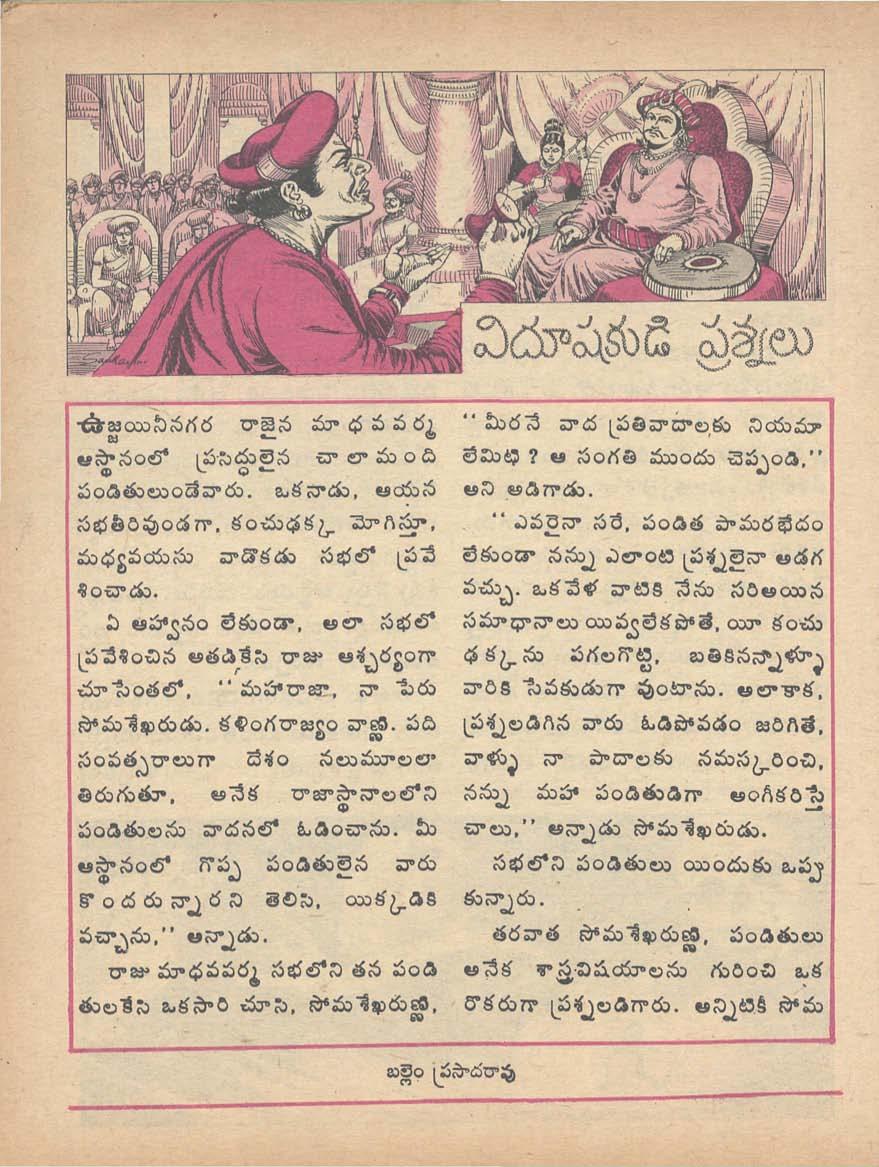 Sankar...
విదూషకుడి ప్రశ్నలు
ఉజ్జయినీనగర రాజైన మాధవవర్మ
ఆస్థానంలో ప్రసిద్ధులైన చాలామంది
పండితులుండేవారు. ఒకనాడు, ఆయన
సభతీరివుండగా, కంచుఢక్క మోగిస్తూ,
మధ్యవయసు వాడొకడు సభలో ప్రవే
శించాడు.
ఏ ఆహ్వానం లేకుండా, అలా సభలో
ప్రవేశించిన అతడికేసి రాజు ఆశ్చర్యంగా
చూసేంతలో, ‘‘మహారాజా, నా పేరు
సోమశేఖరుడు. కళింగరాజ్యం వాణ్ణి. పది
సంవత్సరాలుగా దేశం నలుమూలలా
తిరుగుతూ, అనేక రాజాస్థానాలలోని
పండితులను వాదనలో ఓడించాను. మీ
ఆస్థానంలో గొప్ప పండితులైన వారు
కొందరున్నారని తెలిసి, యిక్కడికి
వచ్చాను,’’ అన్నాడు.
రాజు మాధవవర్మ సభలోని తన పండి
తులకేసి ఒకసారి చూసి, సోమశేఖరుణ్ణి,
‘‘మీరనే వాద ప్రతివాదాలకు నియమా
లేమిటి? ఆ సంగతి ముందు చెప్పండి,’’
అని అడిగాడు.
‘‘ఎవరైనా సరే, పండిత పామరభేదం
లేకుండా నన్ను ఎలాంటి ప్రశ్నలైనా అడగ
వచ్చు. ఒకవేళ వాటికి నేను సరిఅయిన
సమాధానాలు యివ్వలేకపోతే, యీ కంచు
ఢక్కను పగలగొట్టి, బతికినన్నాళ్ళూ
వారికి సేవకుడుగా వుంటాను. అలాకాక,
ప్రశ్నలడిగిన వారు ఓడిపోవడం జరిగితే,
వాళ్ళు నా పాదాలకు నమస్కరించి,
నన్ను మహా పండితుడిగా అంగీకరిస్తే
చాలు,’’ అన్నాడు సోమశేఖరుడు.
సభలోని పండితులు యిందుకు ఒప్పు
కున్నారు.
తరవాత సోమశేఖరుణ్ణి, పండితులు
అనేక శాస్త్రవిషయాలను గురించి ఒక
రొకరుగా ప్రశ్నలడిగారు. అన్నిటికీ సోమ
బల్లెం ప్రసాదరావు